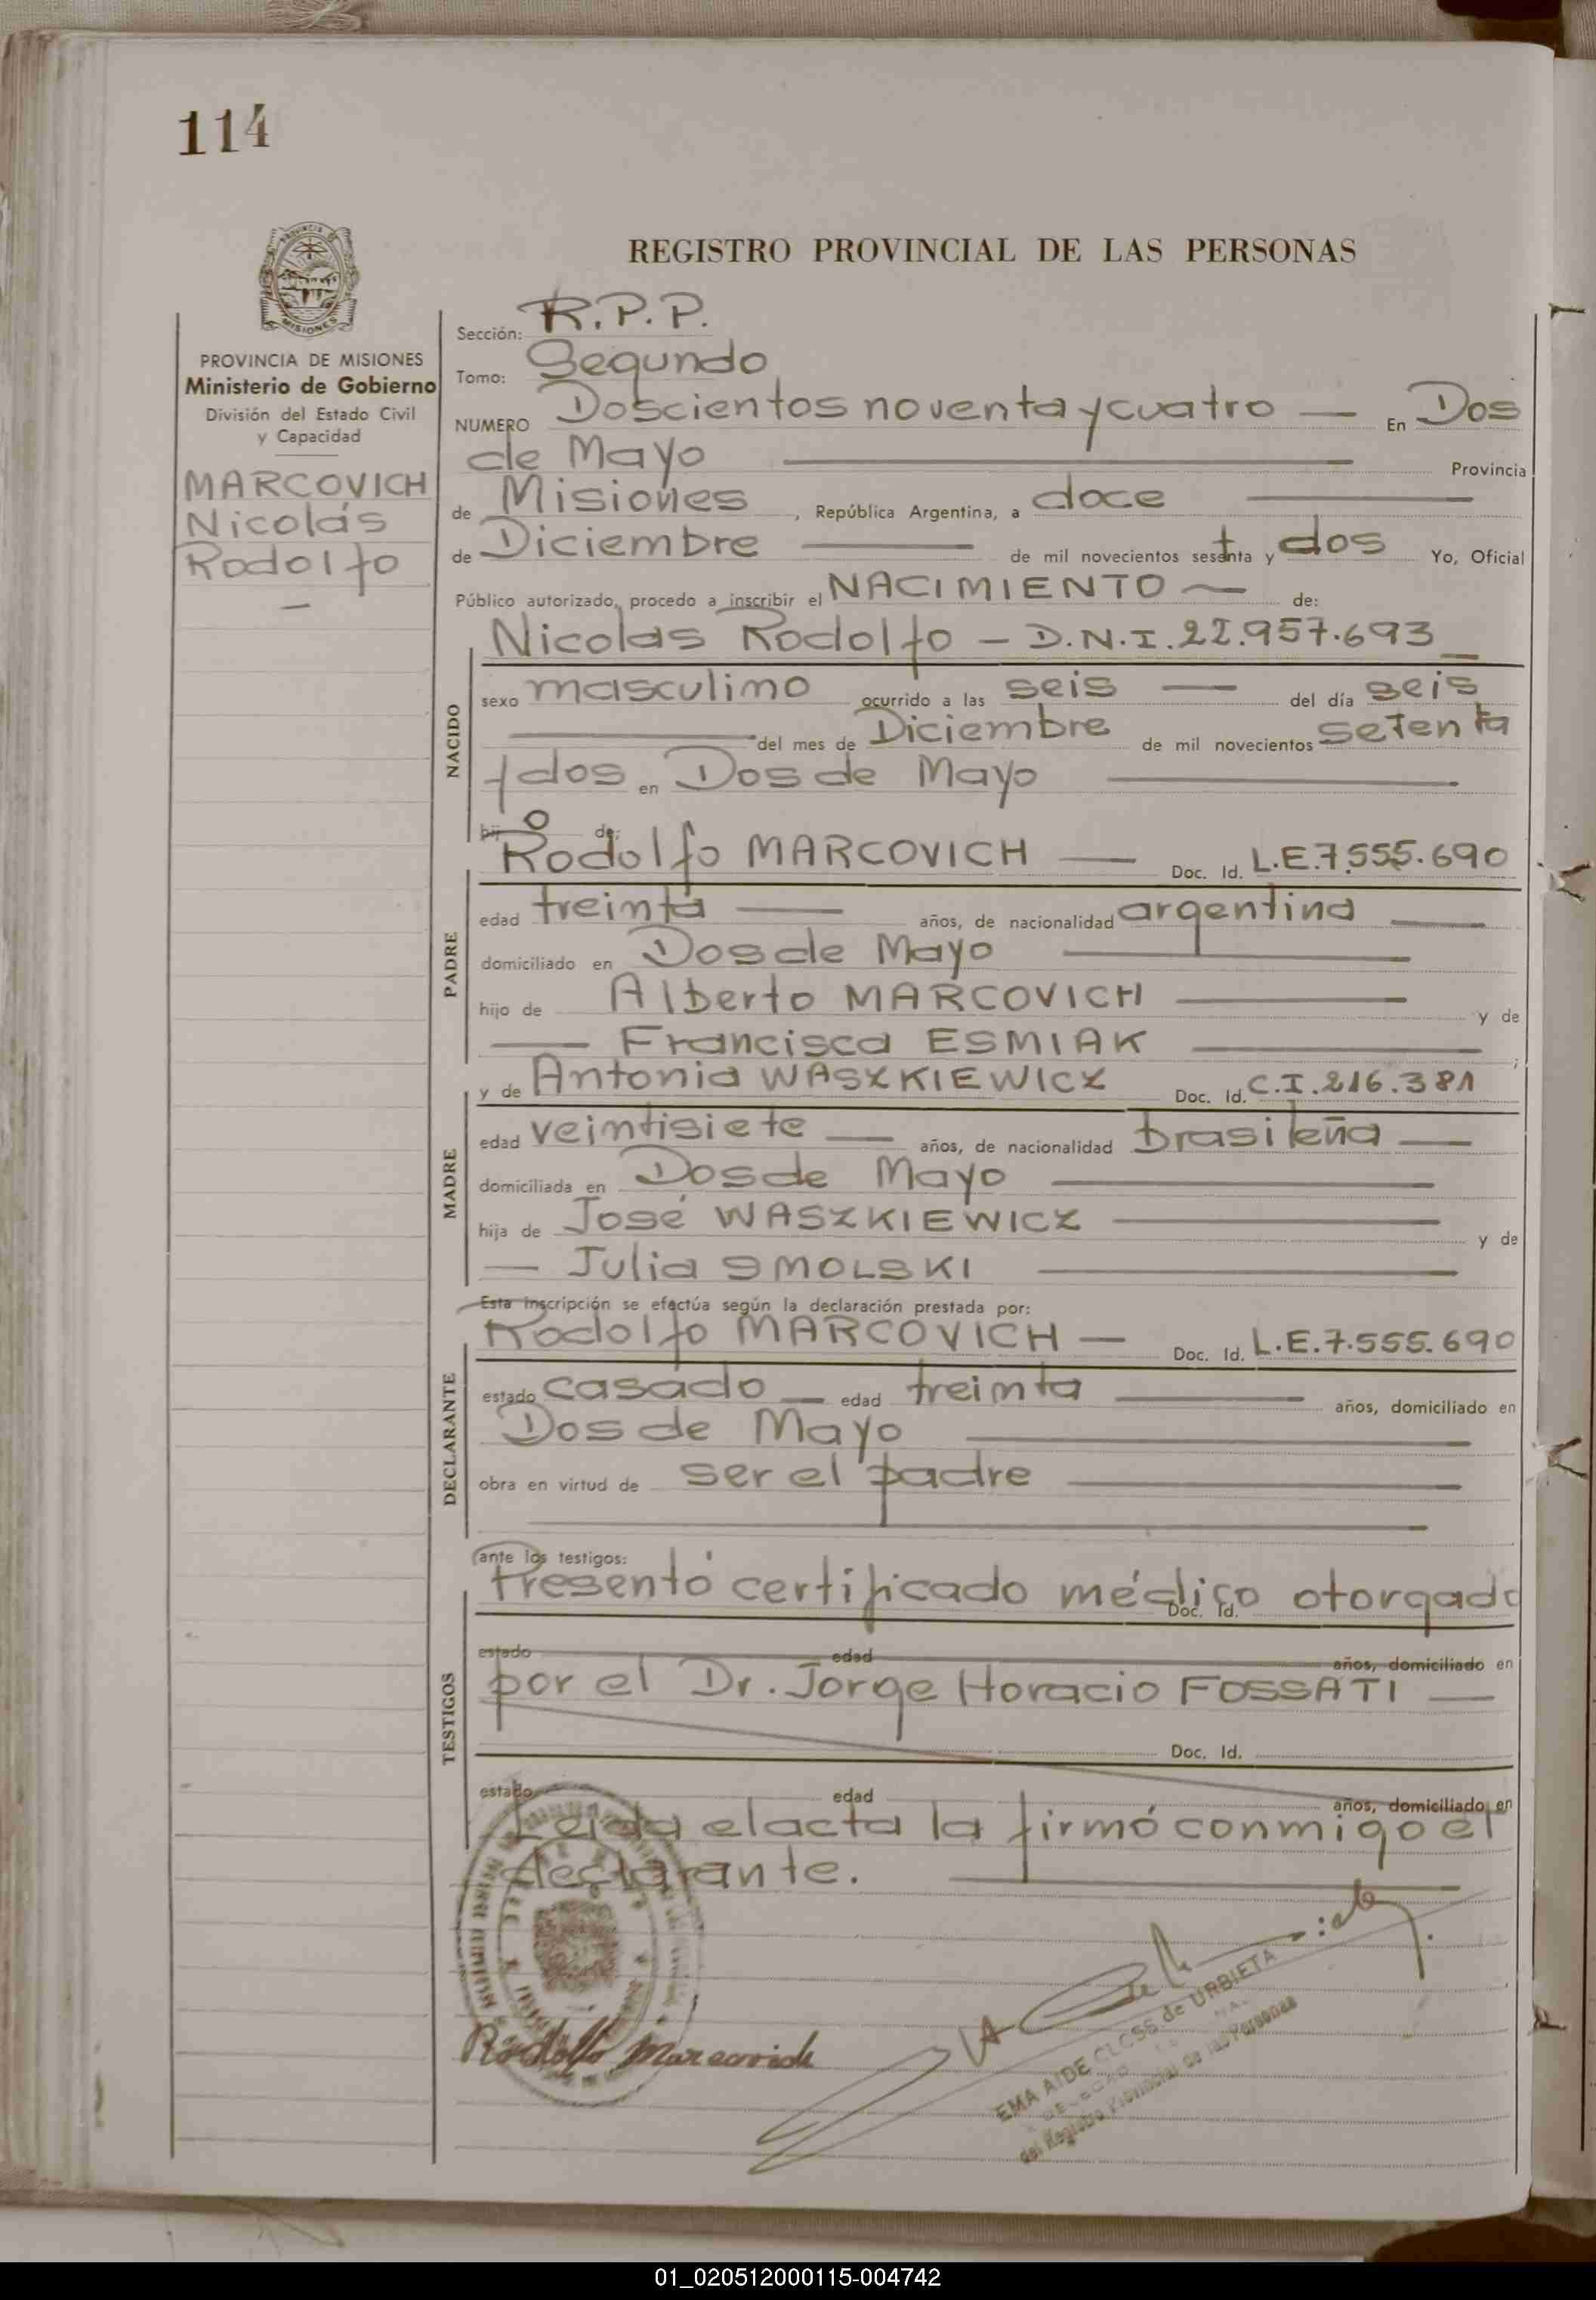 114
REGISTRO PROVINCIAL DE LAS PERSONAS
PROVINCIA DE MISIONES
Ministerio de Gobierno
División del Estado Civil
y Capacidad
MARCOVICH
Nicolás
Rodolfo
Sección: R.P.P.
Tomo: Segundo
NUMERO Doscientos noventa y cuatro — En Dos
de Mayo — Provincia
de Misiones, República Argentina, a doce —
de Diciembre — de mil novecientos setenta y dos Yo, Oficial
Público autorizado, procedo a inscribir el NACIMIENTO — de:
NACIDO
Nicolas Rodolfo — D.N.I. 22.957.693
sexo masculino ocurrido a las seis — del día seis
— del mes de Diciembre de mil novecientos setenta
y dos en Dos de Mayo —
hijo de:
PADRE
Rodolfo MARCOVICH — Doc. Id. L.E.7.555.690
edad treinta — años, de nacionalidad argentina —
domiciliado en Dos de Mayo —
hijo de Alberto MARCOVICH — y de
— Francisca ESMIAK — ;
MADRE
y de Antonia WASZKIEWICZ Doc. Id. C.I.216.381
edad veintisiete — años, de nacionalidad brasileña —
domiciliada en Dos de Mayo —
hija de José WASZKIEWICZ — y de
— Julia SMOLSKI —
Esta inscripción se efectúa según la declaración prestada por:
DECLARANTE
Rodolfo MARCOVICH — Doc. Id. L.E.7.555.690
estado casado — edad treinta — años, domiciliado en
Dos de Mayo —
obra en virtud de ser el padre —
ante los testigos:
TESTIGOS
Presentó certificado médico otorgado
Doc. Id.
estado edad años, domiciliado en
por el Dr. Jorge Horacio FOSSATI —
Doc. Id.
estado edad años, domiciliado en
Leida el acta la firmó conmigo el
declarante. —
Rodolfo Marcovich
EMA AIDE CLOSS de URBIETA
del Registro Provincial de las Personas
01_020512000115-004742